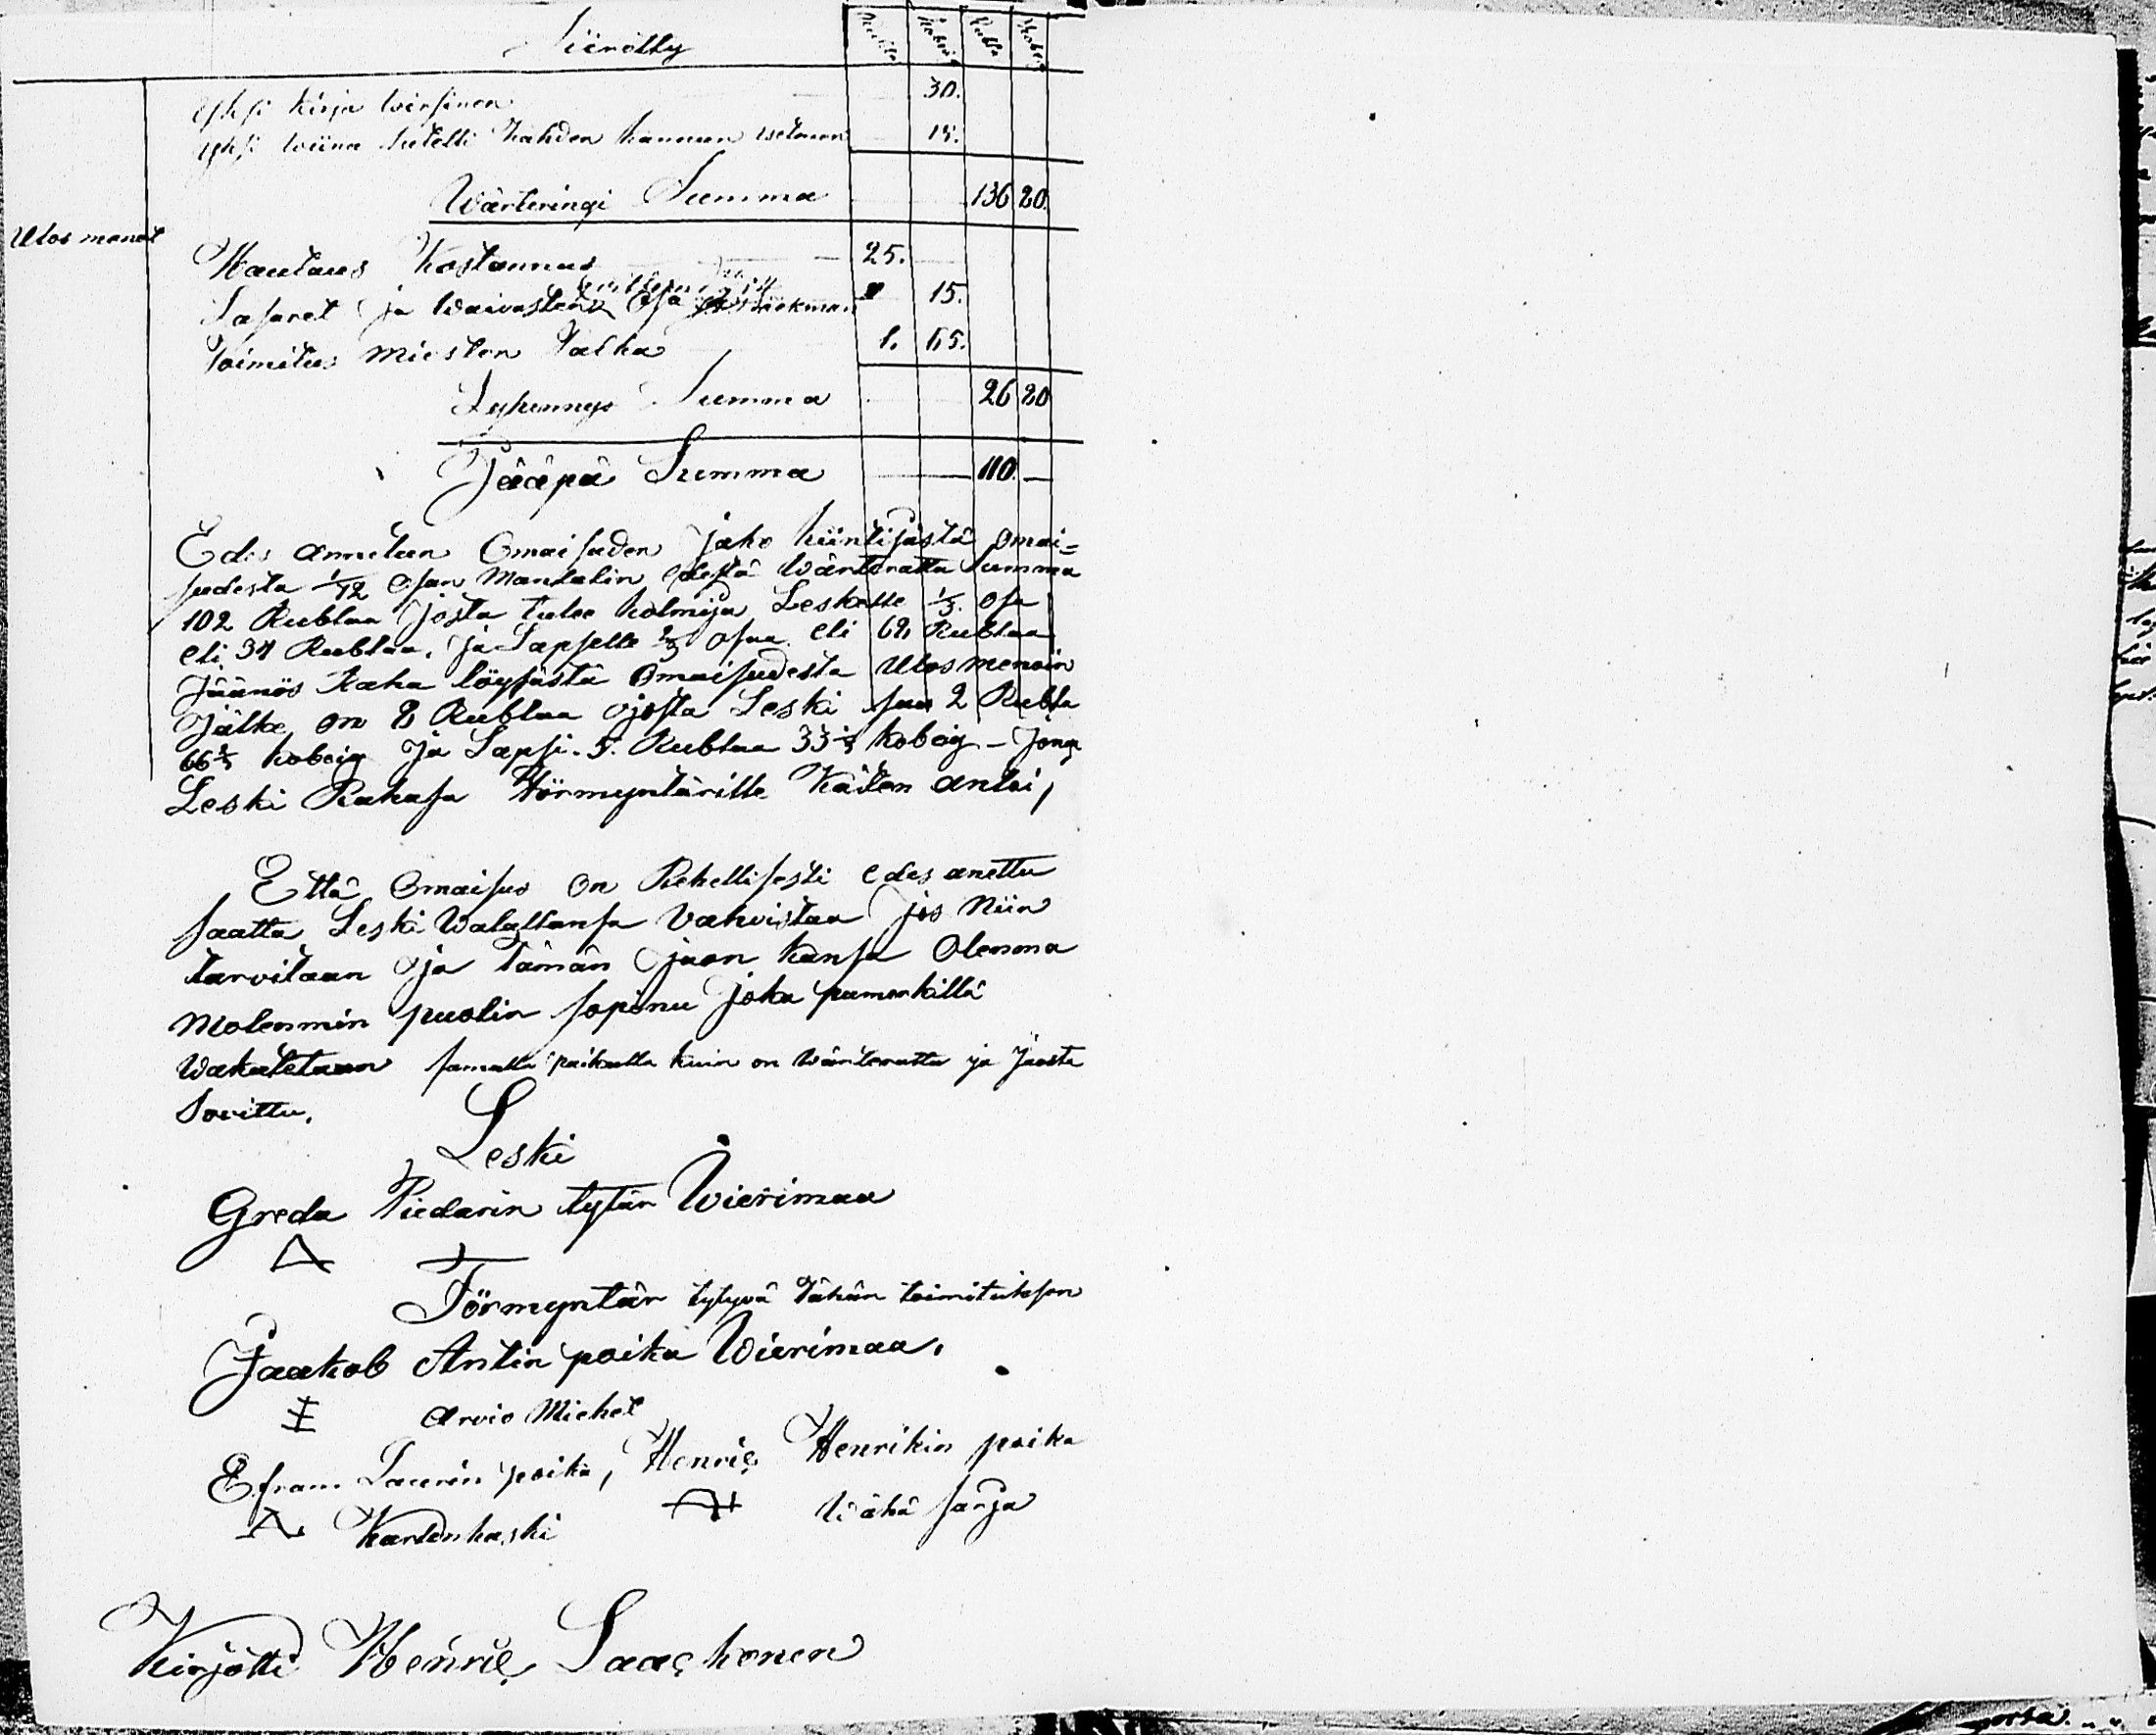 Siirätty Rubla Kobeig Rubla Kobeig
Yksi kirja wirsinen 30.
Yksi wiina putelli kahden kannun vetanen 15.
Wärteringi Summa 136 20.
Ulos menot
Hautaus kostannus 25.
Lasaret ja waivasten osa 15.
Toimitus miesten Palka 1. 65.
Lyhennys Summa 26 20
Jääpä Summa 110. —
Edes annetun Omaisuden jako kiintijästä omai=
sudesta 1/12 osan Mantalin edestä Wärteratta Summa
102 Rublaa josta tulee kolmija Leskelle 1/3. osa
eli 34 Rublaa. ja Lapselle 2/3 osaa eli 68 Rublaa
Jäänös Raha löysästä Omaisudesta Ulos menoin
Jälke on 8 Rublaa josta Leski saa 2 Rubla
66 2/3 kobeig ja Lapsi. 5. Rublaa 33 1/3 kobeig – Jonga
Leski Rahasa Förmyntärille Käten antoi,
Että Omaisus on Rehellisesti edes anettu
saatta Leski Walallansa vahvistaa jos Niin
tarvitaan ja tämän jaon kansa Olemma
Molemmin puolin sopinu joka pumerkillä
Wakutetaan samalla paikalla kuin on Wärteratta ja Jaosta
Sovittu.
Leski
Greda Piedarin tytär Wierimaa
Förmyntär tytyvä tähän toimituksen
Jaakob Antin poika Wierimaa.
Arvio Miehet
Efram Laurin poika, Henric Henrikin poika
Kartenkaski Wähä sarja
Kirjotti Henric Saaskonen